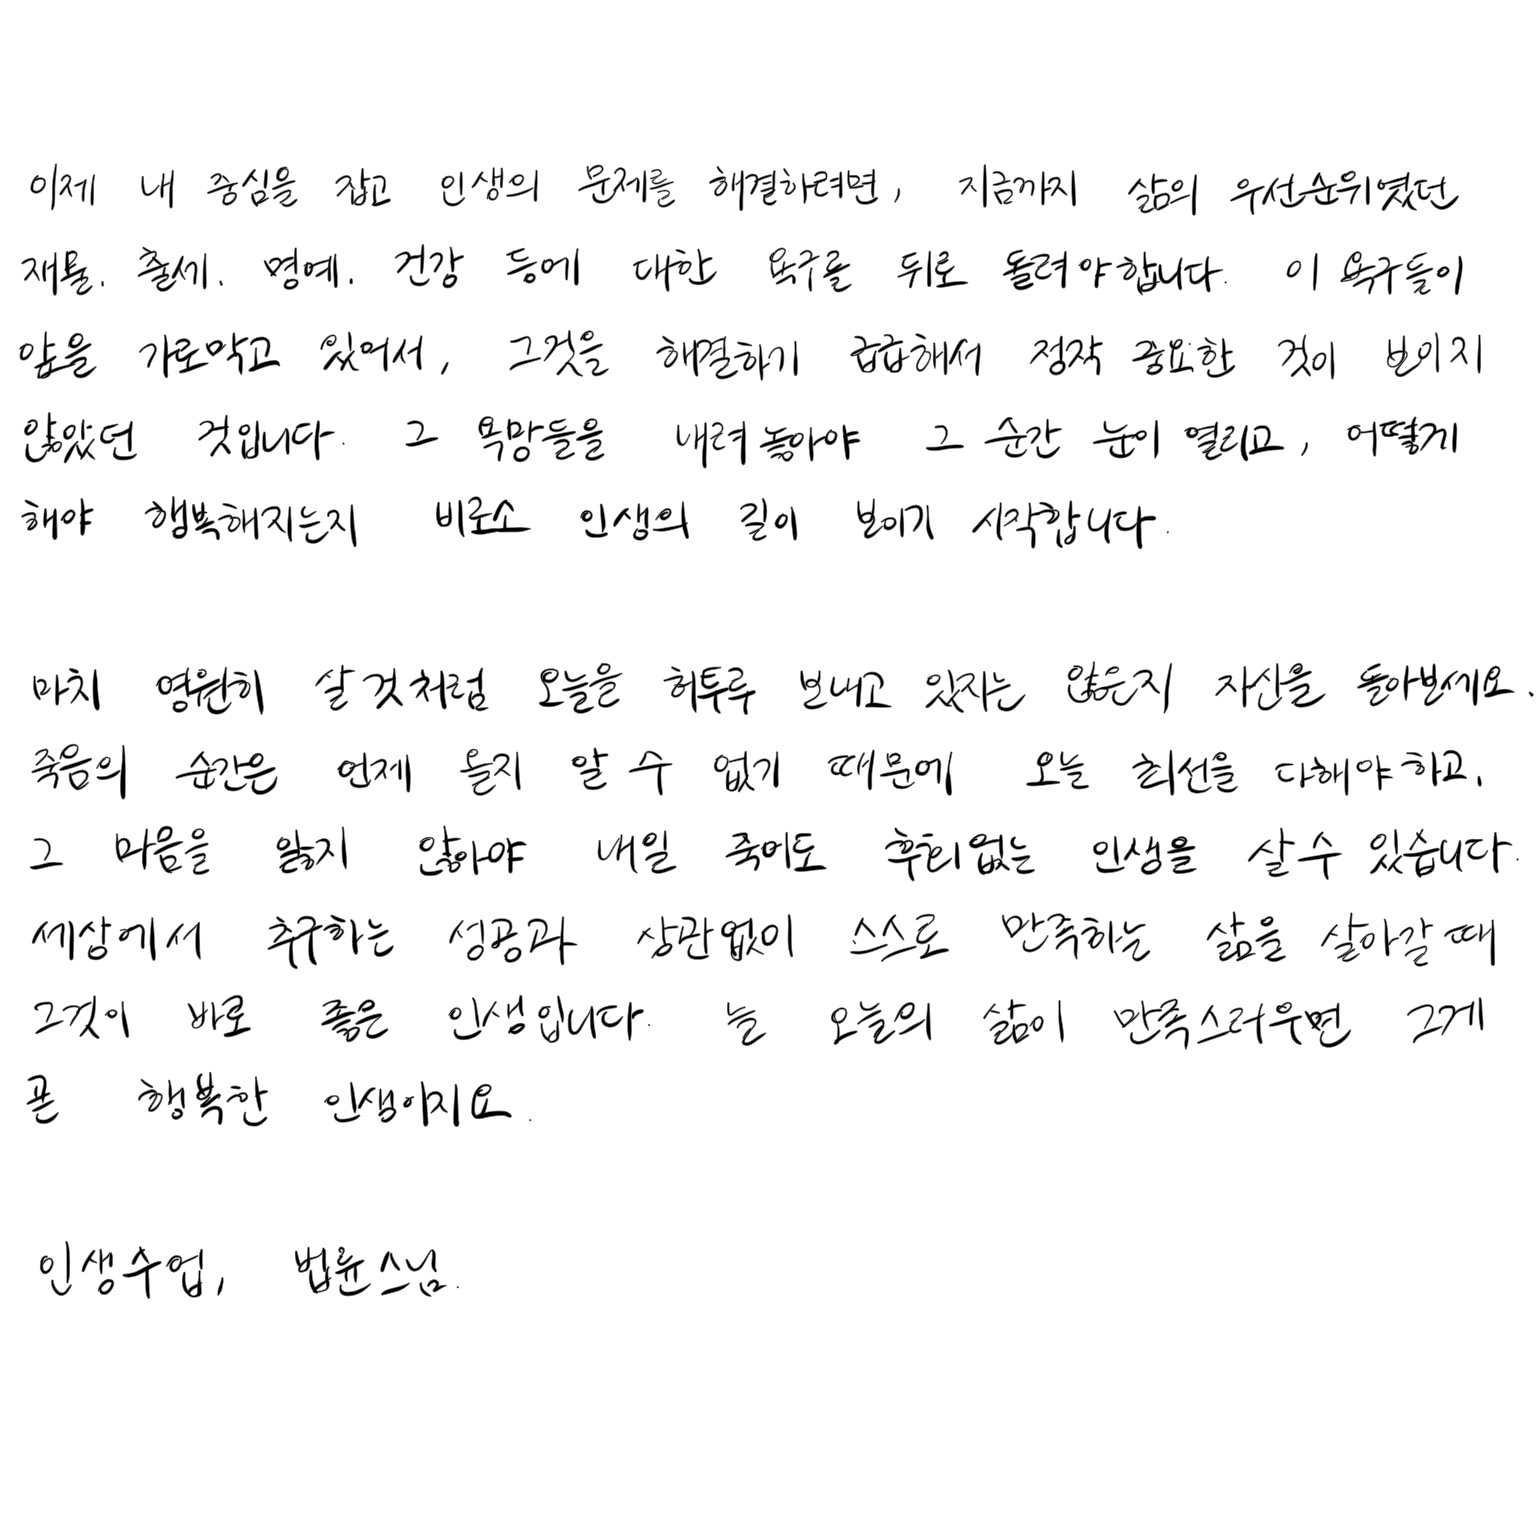 이제 내 중심을 잡고 인생의 문제를 해결하려면, 지금까지 삶의 우선순위였던
재물. 출세. 명예. 건강 등에 대한 욕구를 뒤로 돌려야합니다. 이 욕구들이
앞을 가로막고 있어서, 그것을 해결하기 급급해서 정작 중요한 것이 보이지
않았던 것입니다. 그 욕망들을 내려놓아야 그 순간 눈이 열리고, 어떻게
해야 행복해지는지 비로소 인생의 길이 보이기 시작합니다.
마치 영원히 살것처럼 오늘을 허투루 보내고 있지는 않은지 자신을 돌아보세요.
죽음의 순간은 언제 올지 알 수 없기 때문에 오늘 최선을 다해야하고.
그 마음을 잃지 않아야 내일 죽어도 후회없는 인생을 살수 있습니다.
세상에서 추구하는 성공과 상관없이 스스로 만족하는 삶을 살아갈때
그것이 바로 좋은 인생입니다. 늘 오늘의 삶이 만족스러우면 그게
곧 행복한 인생이지요.
인생수업, 법륜스님.